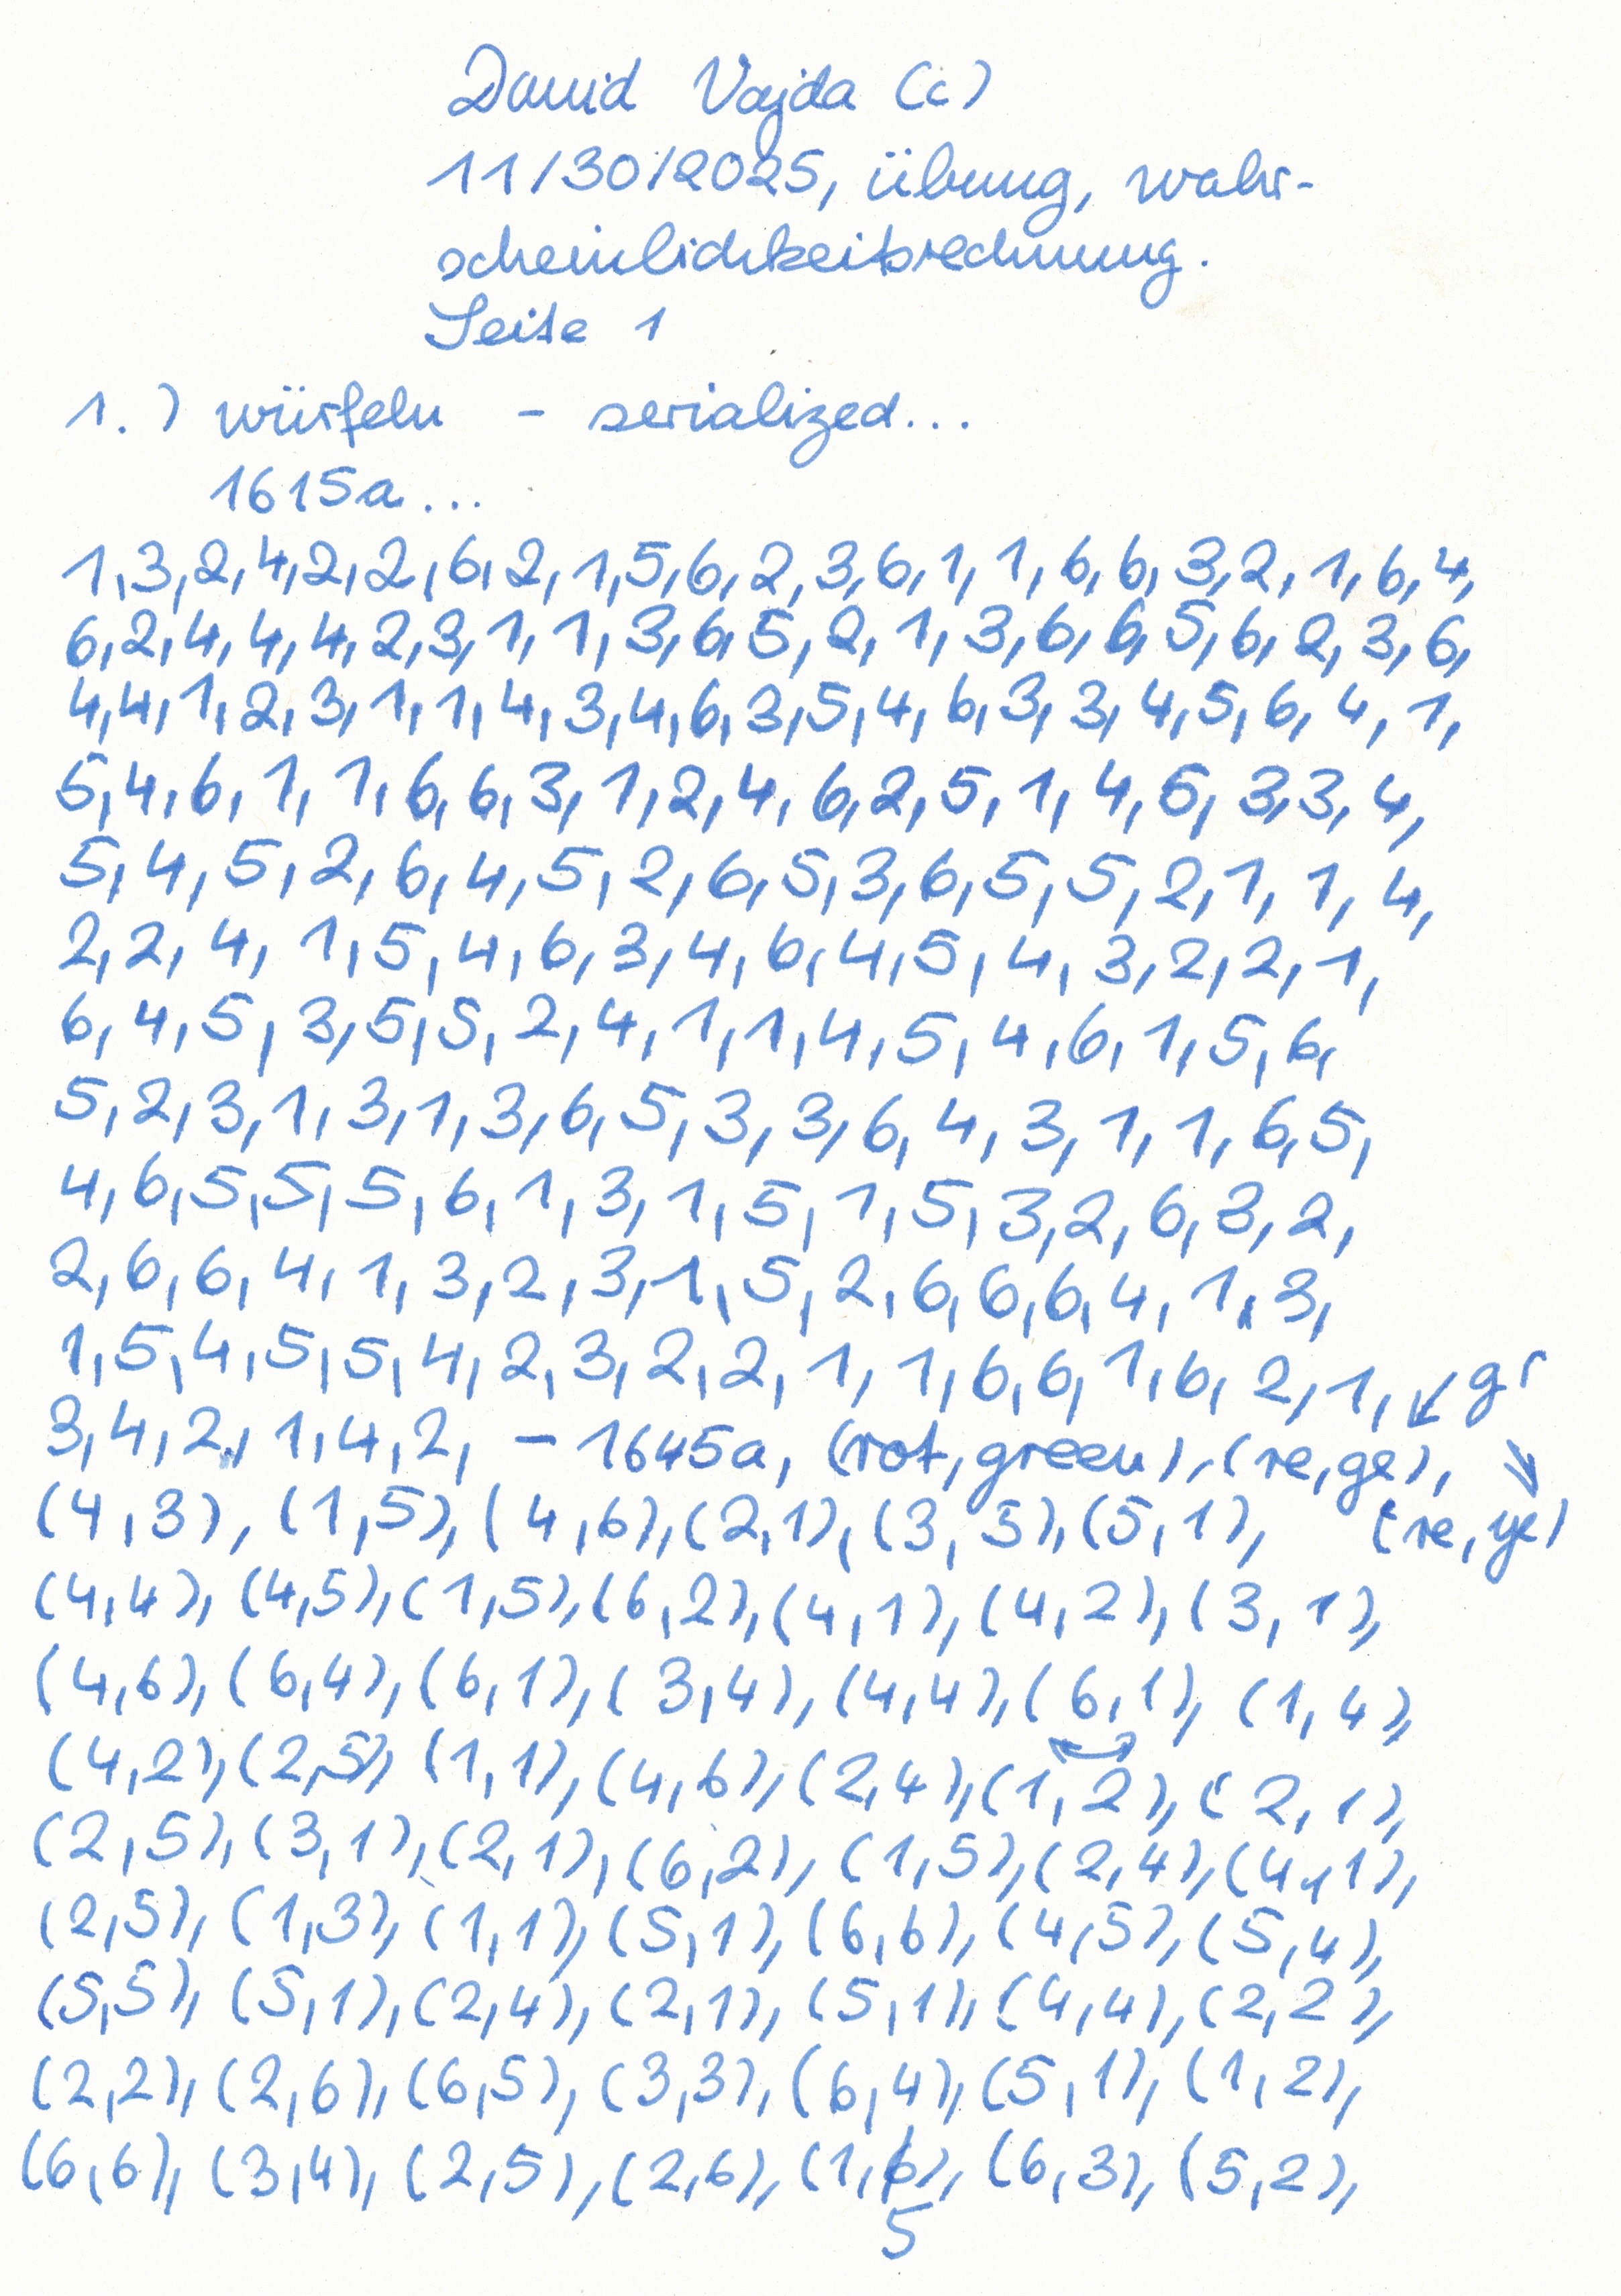 David Vajda (c)
11/30/2025, übung, wahr-
scheinlichkeitsrechnung.
Seite 1
1.) würfeln - serialized...
1615a...
1,3,2,4,2,2,6,2,1,5,6,2,3,6,1,1,6,6,3,2,1,6,4,
6,2,4,4,4,2,3,1,1,3,6,5,2,1,3,6,6,5,6,2,3,6,
4,4,1,2,3,1,1,4,3,4,6,3,5,4,6,3,3,4,5,6,4,1,
5,4,6,1,1,6,6,3,1,2,4,6,2,5,1,4,5,3,3,4,
5,4,5,2,6,4,5,2,6,5,3,6,5,5,2,1,1,4,
2,2,4,1,5,4,6,3,4,6,4,5,4,3,2,2,1,
6,4,5,3,5,5,2,4,1,1,4,5,4,6,1,5,6,
5,2,3,1,3,1,3,6,5,3,3,6,4,3,1,1,6,5,
4,6,5,5,5,6,1,3,1,5,1,5,3,2,6,3,2,
2,6,6,4,1,3,2,3,1,5,2,6,6,6,4,1,3,
1,5,4,5,5,4,2,3,2,2,1,1,6,6,1,6,2,1, ↙ gr
3,4,2,1,4,2, - 1645a, (rot,green),(re,ge), ↘
(4,3),(1,5),(4,6),(2,1),(3,5),(5,1), (re,ye)
(4,4),(4,5),(1,5),(6,2),(4,1),(4,2),(3,1),
(4,6),(6,4),(6,1),(3,4),(4,4),(6,1),(1,4),
(4,2),(2,5),(1,1),(4,6),(2,4),(1,2),(2,1),
(2,5),(3,1),(2,1),(6,2),(1,5),(2,4),(4,1),
(2,5),(1,3),(1,1),(5,1),(6,6),(4,5),(5,4),
(5,5),(5,1),(2,4),(2,1),(5,1),(4,4),(2,2),
(2,2),(2,6),(6,5),(3,3),(6,4),(5,1),(1,2),
(6,6),(3,4),(2,5),(2,6),(1,6),(6,3),(5,2),
5